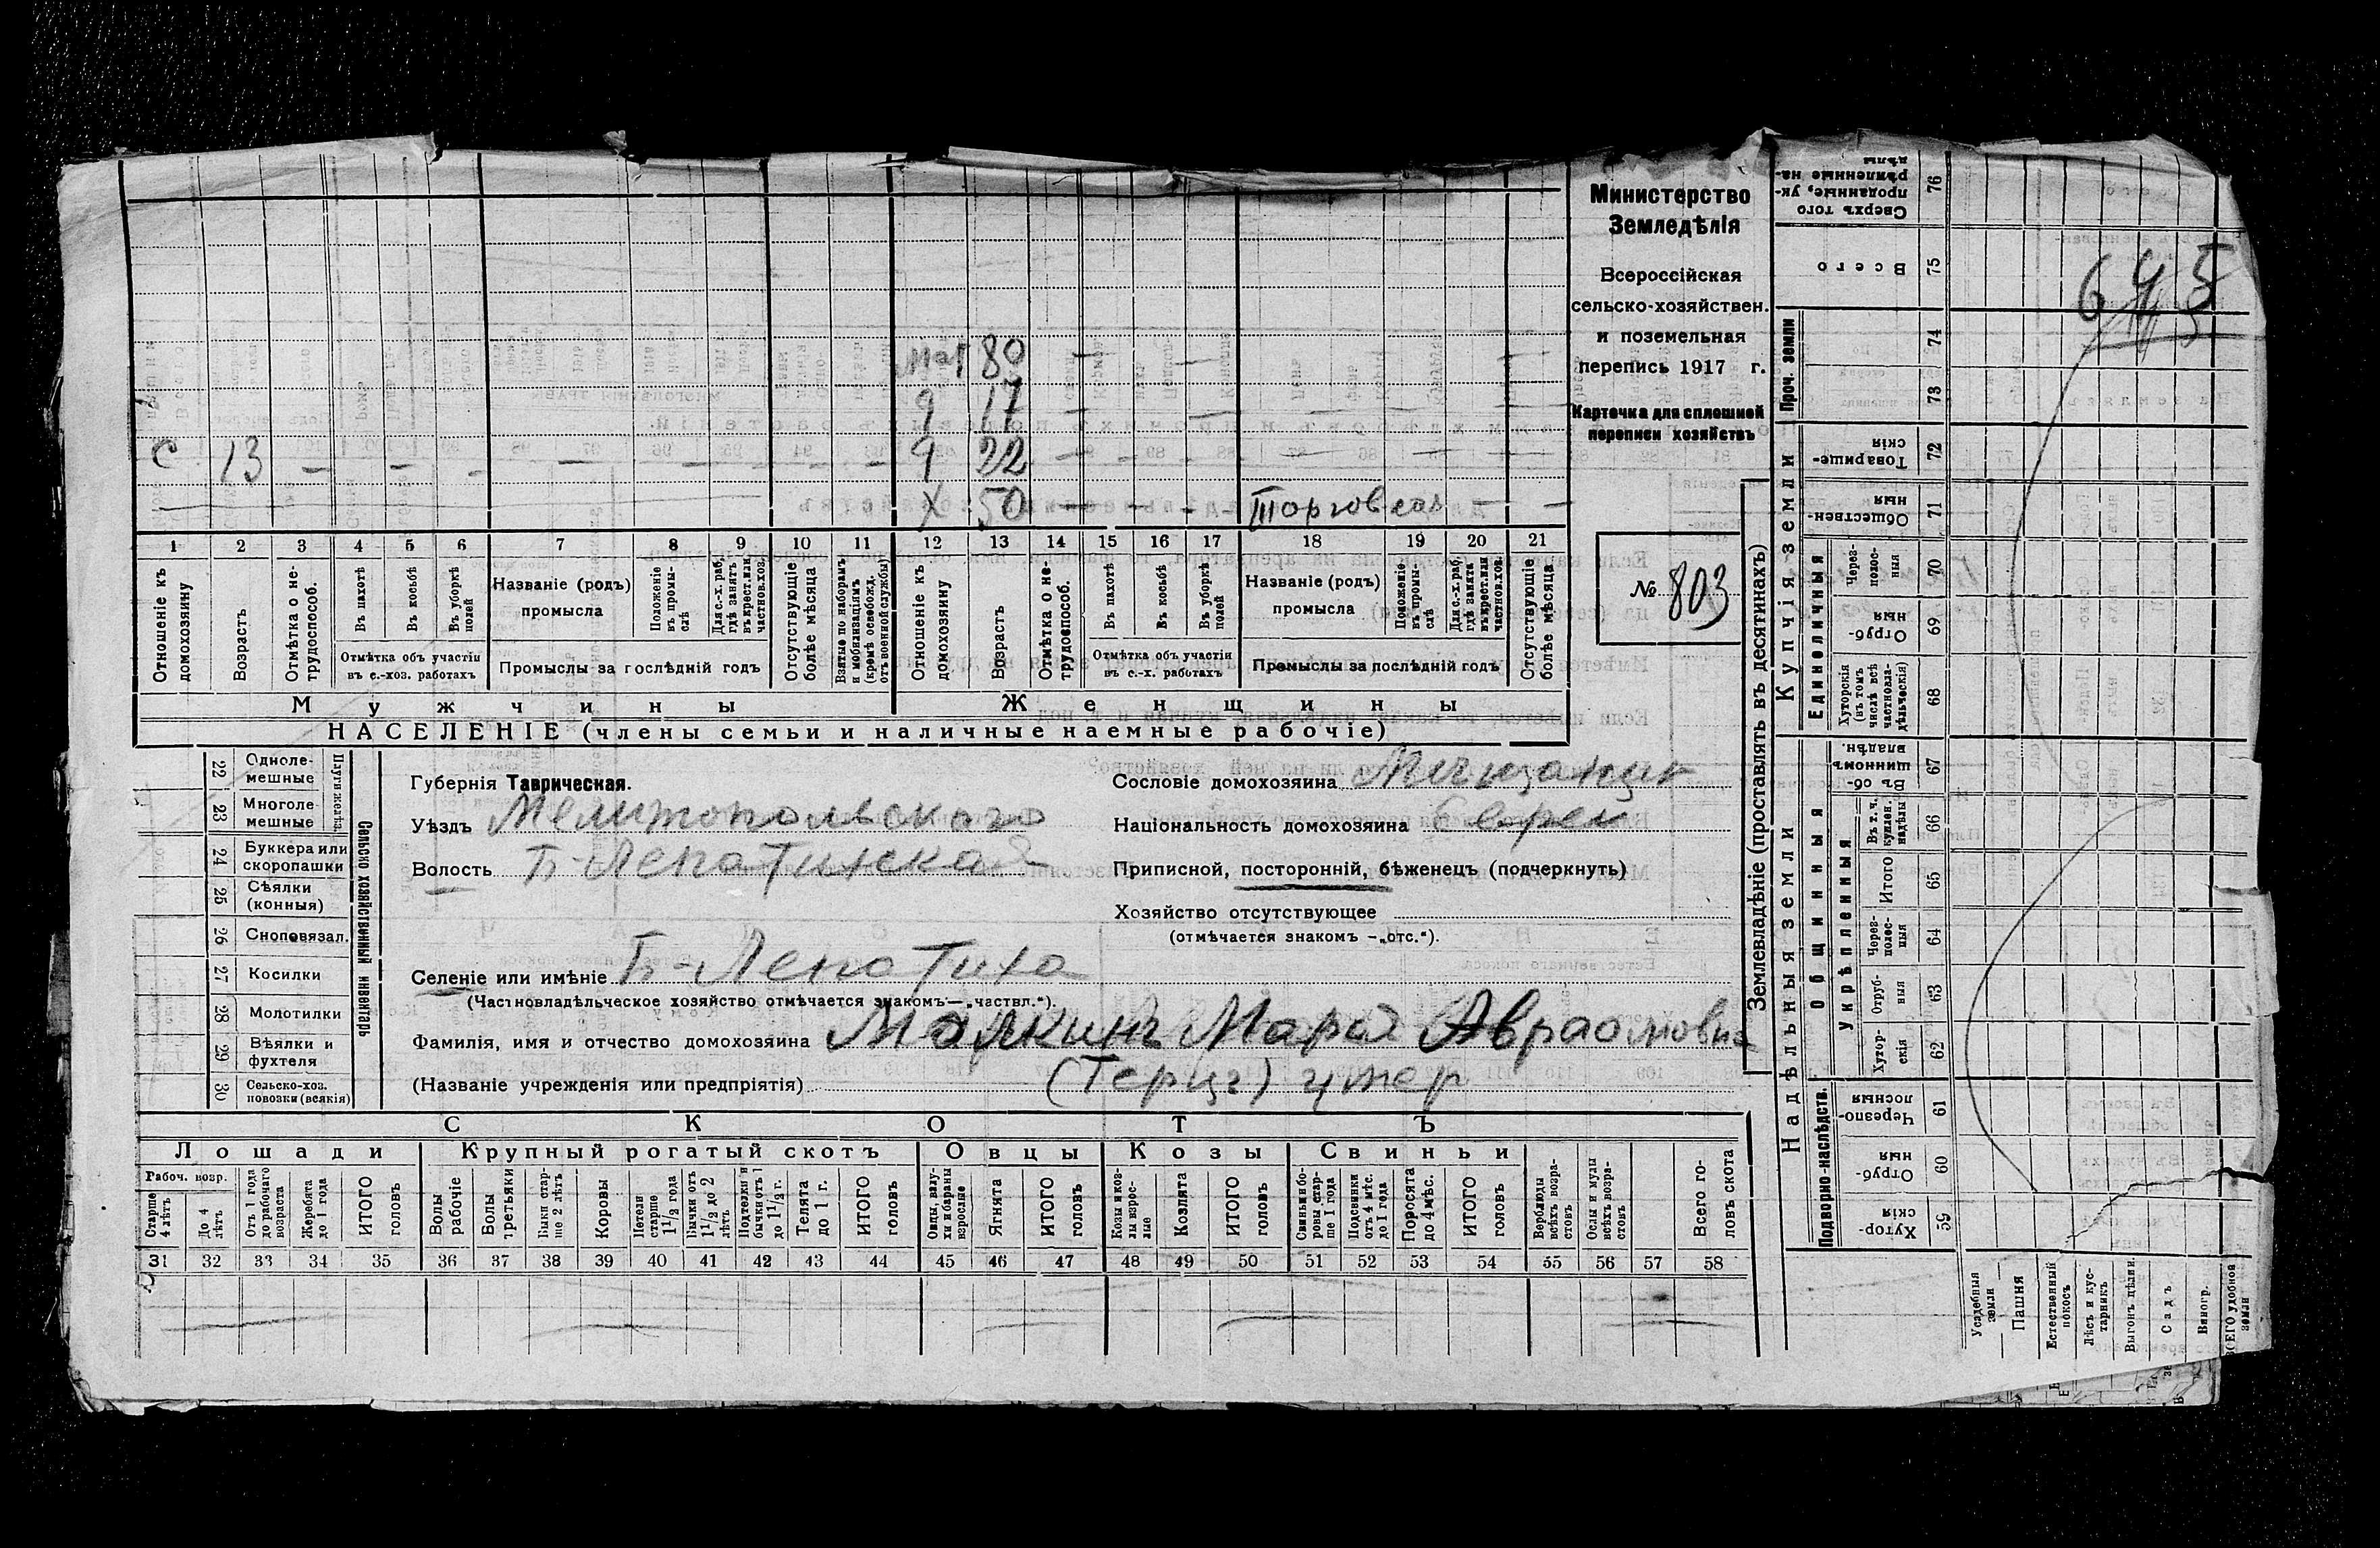 Министерство
Земледѣлія
Всероссійская
сельско-хозяйствен.
и поземельная
перепись 1917 г.
Карточка для сплошной
переписи хозяйствъ
№ 803
645
мат 80 — —
9 17 — — — — —
с 13 — — — — — — — — 9 22 — — — — — — —
х 50 — — — Торговля — —
1 2 3 4 5 6 7 8 9 10 11 12 13 14 15 16 17 18 19 20 21
Отношеніе къ домохозяину
Возрастъ
Отмѣтка о не-трудоспособ.
Въ пахотѣ
Въ косьбѣ
Въ уборкѣ полей
Отмѣтка объ участіи
въ с.-хоз. работахъ
Названіе (родъ)
промысла
Положеніе въ промы-слѣ
Для с.-х. раб, гдѣ занятъ въ крест. или частнов. хоз.
Промыслы за послѣдній годъ
Отсутствующіе болѣе мѣсяца
Взятые по наборамъ и мобилизаціямъ (кромѣ освобожд. отъ военной службы)
Отношеніе къ домохозяину
Возрастъ
Отмѣтка о не-трудоспособ.
Въ пахотѣ
Въ косьбѣ
Въ уборкѣ полей
Отмѣтка объ участіи
въ с.-х. работахъ
Названіе (родъ)
промысла
Положеніе въ промы-слѣ
Для с.-х. раб, гдѣ занята въ крест. или частнов. хоз.
Промыслы за послѣдній годъ
Отсутствующіе болѣе мѣсяца
Мужчины Женщины
НАСЕЛЕНІЕ (члены семьи и наличные наемные рабочіе)
22 Одноле-мешные
23 Многоле-мешные
24 Буккера или скоропашки
25 Сѣялки (конныя)
26 Сноповязал.
27 Косилки
28 Молотилки
29 Вѣялки и фухтеля
30 Сельско-хоз. повозки (всякія)
Сельско хозяйственный инвентарь
Губернія Таврическая.
Уѣздъ Мелитопольского
Волость Б-Лепатихская
Селеніе или имѣніе Б-Лепатиха
(Частновладѣльческое хозяйство отмѣчается знакомъ—„частвл.“).
Фамилія, имя и отчество домохозяина Малкинъ Мара Авраамовна
(Названіе учрежденія или предпріятія) умер
Сословіе домохозяина
Національность домохозяина еврей
Приписной, посторонній, бѣженецъ (подчеркнуть)
Хозяйство отсутствующее
(отмѣчается знакомъ —„отс.“).
СКОТЪ
Лошади Крупный рогатый скотъ Овцы Козы Свиньи
Рабоч. возр.
Старше 4 лѣтъ
До 4 лѣтъ
Отъ 1 года до рабочаго возраста
Жеребята до 1 года
ИТОГО головъ
Волы рабочіе
Волы третьяки
Быки стар-ше 2 лѣтъ
Коровы
Нетели старше 1½ года
Бычки отъ 1½ до 2 лѣтъ
Подтелки и бычки отъ 1 до 1½ г.
Телята до 1 г.
ИТОГО головъ
Овцы, валу-хи и бараны взрослые
Ягнята
ИТОГО головъ
Козы и коз-лы взрос-лые
Козлята
ИТОГО головъ
Свиньи и бо-ровы стар-ше 1 года
Подсвинки отъ 4 мѣс. до 1 года
Поросята до 4 мѣс.
ИТОГО головъ
Верблюды всѣхъ возра-стовъ
Ослы и мулы всѣхъ возра-стовъ
Всего го-ловъ скота
31 32 33 34 35 36 37 38 39 40 41 42 43 44 45 46 47 48 49 50 51 52 53 54 55 56 57 58
Землевладѣніе (проставлять въ десятинахъ)
Надѣльныя земли
Купчія земли
Подворно-наслѣдств.
Общинныя
Укрѣпленныя
Единоличныя
Проч. земли
Сверхъ того проданные, ук-рѣпленные на-дѣлы 76
Всего 75
74
73
Товарище-скія 72
Обществен-ныя 71
Через-полос-ныя 70
Отруб-ныя 69
Хуторскія (въ томъ числѣ всѣ частновла-дѣльческія) 68
Въ об-щинномъ владѣн. 67
Въ т. ч. куплен. надѣлы 66
Итого 65
Через-полос-ныя 64
Отруб-ныя 63
Хутор-скія 62
Черезпо-лосныя 61
Отруб-ныя 60
Хутор-скія 59
Усадебныя земли
Пашня
Естественный покосъ
Лѣсъ и кус-тарникъ
Выгонъ цѣлин.
Садъ
Виногр.
ВСЕГО удобной земли